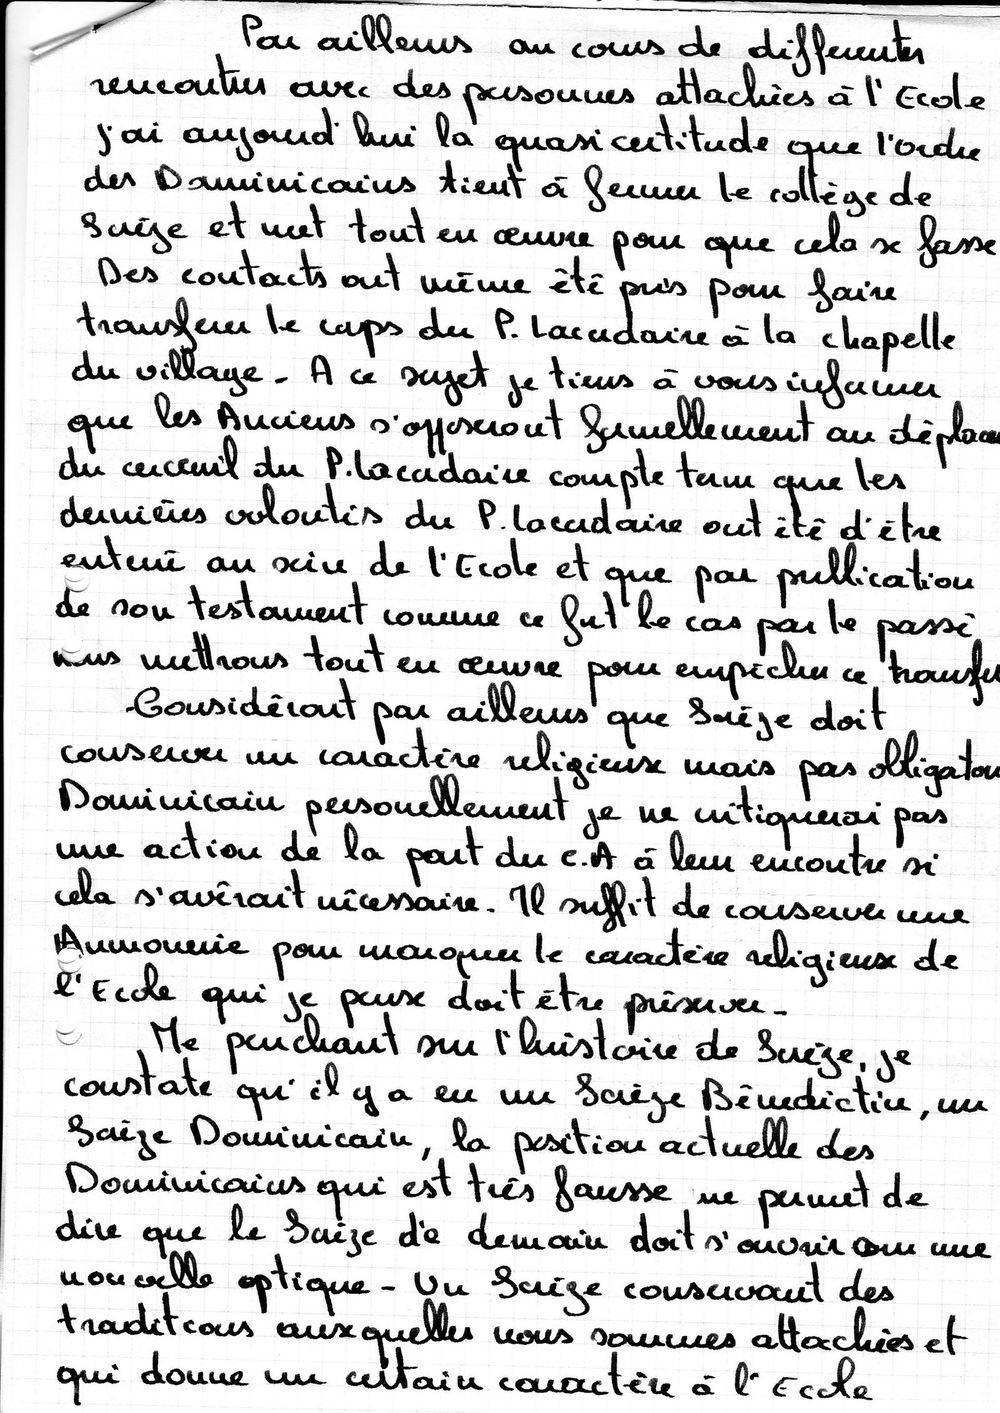 Par ailleurs au cours de differentes
rencontres avec des personnes attachées à l'Ecole
j'ai aujourd'hui la quasi certitude que l'ordre
des Dominicains tient à fermer le collège de
Sorèze et met tout en œuvre pour que cela se fasse
Des contacts ont même été pris pour faire
transferer le corps du P. Lacordaire à la chapelle
du village - A ce sujet je tiens à vous informer
que les Anciens s'opposeront formellement au déplace
du cerceuil du P. Lacordaire compte tenu que les
dernières volontés du P. Lacordaire ont été d'être
enterré au sein de l'Ecole et que par publication
de son testament comme ce fut le cas par le passé
nous mettrons tout en œuvre pour empêcher ce transfer
-Considérant par ailleurs que Sorèze doit
conserver un caractère religieux mais pas obligatoir
Dominicain personellement je ne critiquerai pas
une action de la part du C.A à leur encontre si
cela s'avérait nécessaire - Il suffit de conserver une
Aumonerie pour marquer le caractère religieux de
l'Ecole qui je pense doit être préserver -
Me penchant sur l'histoire de Sorèze, je
constate qu'il y a eu un Sorèze Bénédictin, un
Sorèze Dominicain, la position actuelle des
Dominicains qui est très fausse me permet de
dire que le Sorèze de demain doit s'ouvrir sur une
nouvelle optique - Un Sorèze conservant des
traditions auxquelles nous sommes attachées et
qui donne un certain caractère à l'Ecole